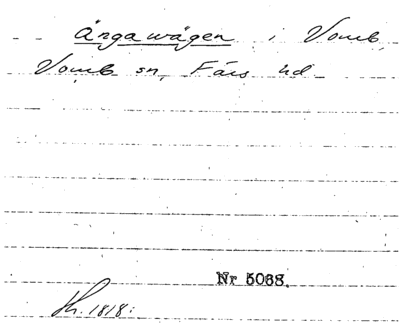 Ängawägen i Vomb,
Vomb sn, Färs hd
Nr 5068.
Kh. 1818: